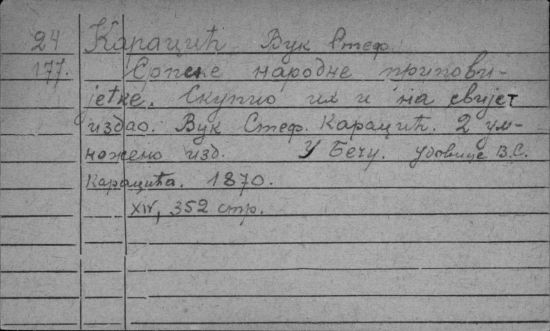 24 Караџић Вук Стеф.
177. Српске народне припови-
јетке. Скупио их и на свијет
издао. Вук Стеф. Караџић. 2 ум-
ножено изд. У Бечу. удовице В.С.
Караџића. 1870.
XIV, 352 стр.